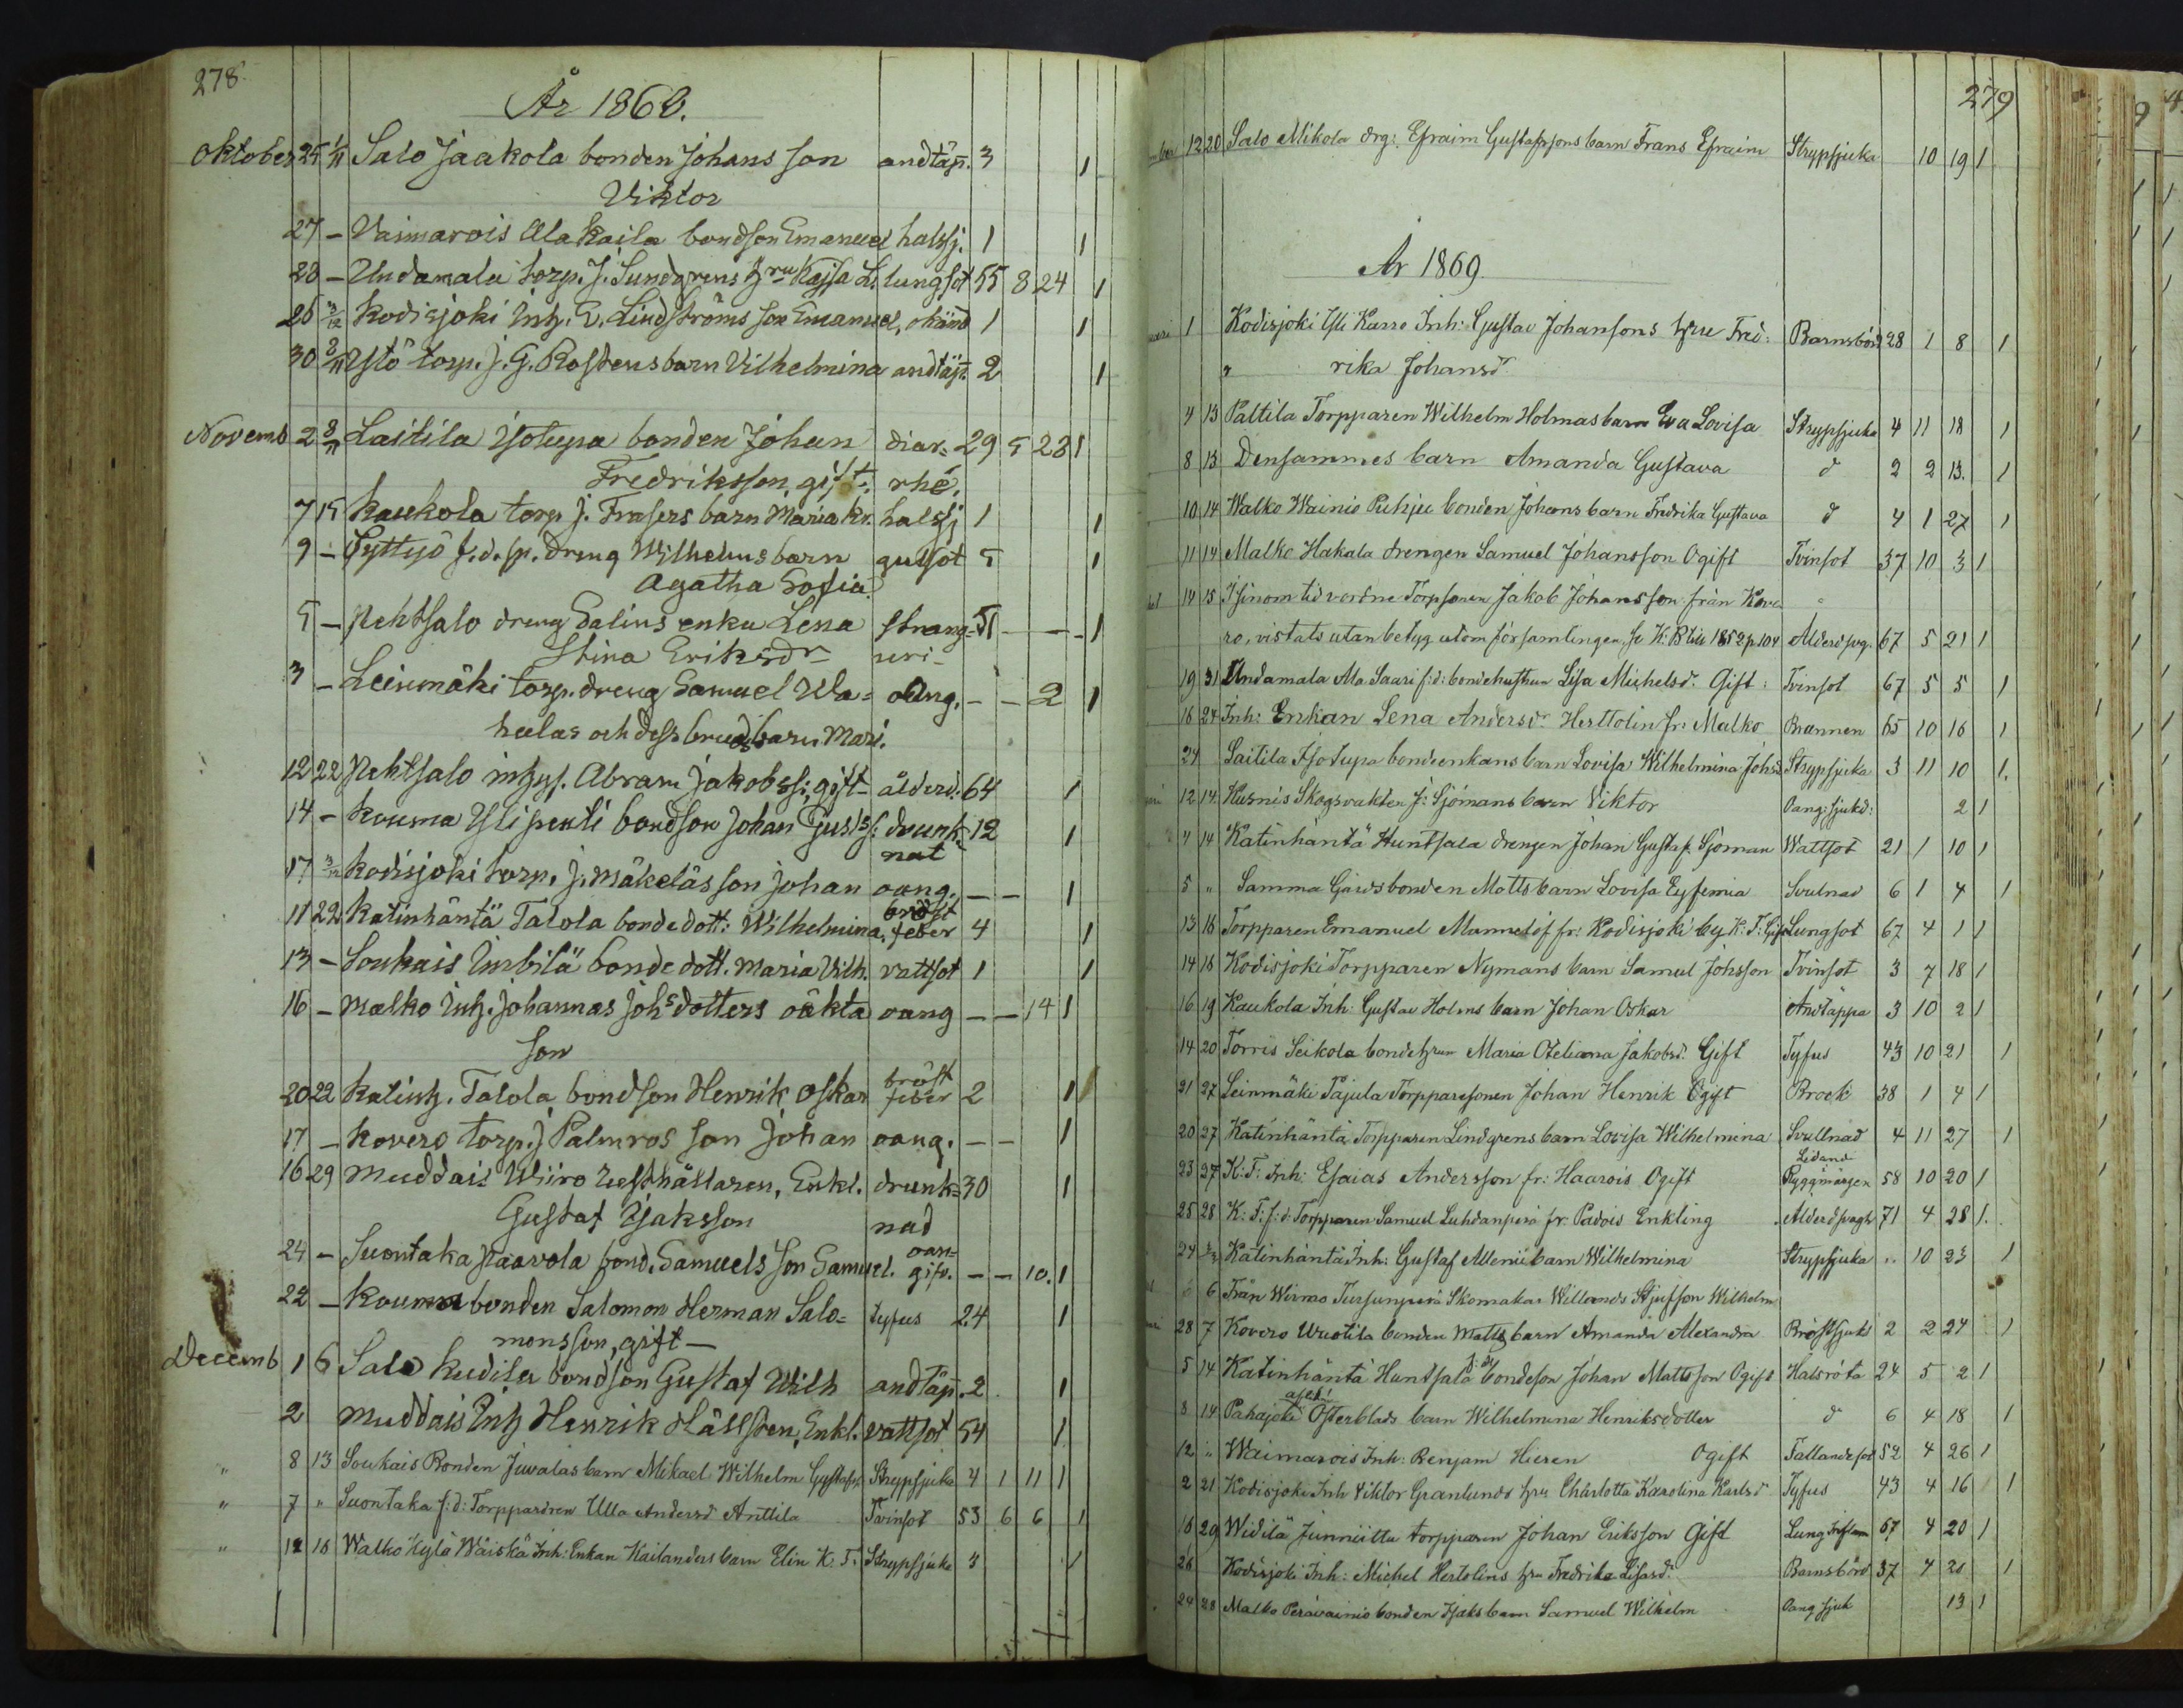 278
År 1868.
Oktober 25 1/11 Salo Jaakola bonden Johans son andtäp. 3 1
Viktor
27 – Vaimarois Alakaila bondson Emanuel halssj. 1 1
28 – Undamala torp. J. Sundgrens hru Kajsa L. lungsot 55 8 24 1
26 3/12 Kodisjoki Inh. E. Lindströms son Emanuel, okänd 1 1
30 8/11 Ystö torp. J. G. Rostens barn Vilhelmina andtäpt. 2 1
Novemb 2 8/11 Laitila Isotupa bonden Johan diar= 29 5 23 1
Fredriksson, gift. rhé.
7 15 Kaukola torp J. Frasers barn Maria Kr. halssj 1 1
9 – Syttyö f.d. sp. dreng Wilhelms barn gulsot 5 1
Agatha Sofia
5 – Nehtsalo dreng Salins enka Lena strang= 51 – – 1
Stina Eriksdr uri–
3 – Leinmäki torp. dreng Samuel Wla= oang. – – 2 1
heelas och dess bruds barn Mari.
12 22 Nehtsalo inhys. Abram Jakobss; gift– ålderd: 64 1
14 – Kouma Ylipenti bondson Johan Gusts: drunk= 12 1
nat
17 3/12 Kodisjoki torp. J. Mäkeläs son Johan oang. – – 1
11 22 Katinhäntä Talola bondedott: Wilhelmina, bröst feber 4 1
13 – Soukais Impilä bondedott. Maria Vilh. vattsot 1 1
16 – Malko Inh. Johannas Johsdotters oäkta oang – – 14 1
son
20 22 Katinh. Talola bondson Henrik Oskar bröst feber 2 1
17 – Kovero torp. J Palmros son Johan oang. – – 1
16 29 Muddais Wiiro Gesthållaren, Enkl. drunk= 30 1
Gustaf Isaksson nad
24 – Suontaka Paavola bond. Samuels son Samuel. oan= gifv. – – 10. 1
22 – Kouma bonden Salomon Herman Salo= tyfus 24 1
monsson, gift–
Decemb 1 6 Salo Kudila bondson Gustaf Wilh andtäp. 2 1
2 Muddais Inh Henrik Hällsten, Enkl. vattsot 54 1
" 8 13 Soukais Bonden Juvalas barn Mikael Wilhelm Gustafs: Strypsjuka 4 1 11 1
" 7 " Suontaka f:d: Torppardren Ulla Andersd Anttila Tvinsot 53 6 6 1
" 12 16 Walko Kylä Wäiskä Inh: Enkan Kailanders barn Elin K. F. Strypsjuka 3 1
279
12 20 Salo Mikola drg: Efraim Gustafssons barn Frans Efraim Strypsjuka 10 19 1
År 1869.
1 Kodisjoki Yli Karro Inh: Gustav Johansons hru Fred: Barnsbörd 28 1 8 1
rika Johansd
4 13 Paltila Torpparen Wilhelm Holmas barn Eva Lovisa Strypsjuka 4 11 18 1
8 13 Densammes barn Amanda Gustava d 2 2 13. 1
10 14 Walko Wainio Puhju bonden Johans barn Fredrika Gustava d 4 1 27 1
11 14 Malko Hakala drengen Samuel Johansson Ogift Tvinsot 37 10 3 1
14 15 Isinom tid vordne Torpsonen Jakob Johansson från Kove
ro, vistats utan betyg utom församlingen, se K: B liu 1852 p. 104 Alderdsvg. 67 5 21 1
19 31 Undamala Ala Saari f:d: bondehustrun Lisa Michelsd. Gift: Tvinsot 67 5 5 1
16 24 Inh: Enkan Lena Andersd. Herttolin fr: Malko Brännen 65 10 16 1
24 Laitila Isotupa bondeenkans barn Lovisa Wilhelmina Johsd Strypsjuka 3 11 10 1.
12 14 Kusnis Skogsvakten J: Sjömans barn Viktor Oang: sjukd: 2 1
4 14 Katinhäntä Huntsala drengen Johan Gustaf Sjöman Wattsot 21 1 10 1
5 " Samma Gårdsbonden Matts barn Lovisa Eyfemia Svulnad 6 1 4 1
13 16 Torpparen Emanuel Mannelöf fr: Kodisjoki by K: F: Gift Lungsot 67 4 1 1
14 16 Kodisjoki Torpparen Nymans barn Samuel Johsson Tvinsot 3 7 18 1
16 19 Kaukola Inh: Gustav Holms barn Johan Oskar Andtäppa 3 10 2 1
14 20 Torris Seikola bondehrun Maria Otteliana Jakobsd. Gift Tyfus 43 10 21 1
21 27 Leinmäki Pajula Torpparesonen Johan Henrik Ogift Brock 38 1 4 1
20 27 Katinhäntä Torpparen Lindgrens barn Lovisa Wilhelmina Svullnad 4 11 27 1
23 27 K: F: Inh: Esaias Andersson fr: Haarois Ogift Lidand Ryggmärgen 58 10 20 1
25 28 K: F: f:d: Torpparen Samuel Luhdanperä fr: Padois Enkling Alderdsvagh 71 4 28 1.
24 Katinhäntä Inh: Gustaf Allenii barn Wilhelmina Strypsjuka " 10 23 1
6 6 Från Wirmo Tursunperä Skomakar Willands Stjufson Wilhelm
28 7 Kovero Uuotila bonden Matts barn Amanda Alexandra Bröstsjuks 2 2 24 1
5 14 Katinhäntä Huntsala f: d: bondeson Johan Mattsson Ogift Halsröta 24 5 2 1
8 14 Pahajoki Österblads barn Wilhelmina Henriksdotter d 6 4 18 1
12 " Waimarois Inh: Benjam Hieren Ogift Fallandesot 52 4 26 1
2 21 Kodisjoki Inh Viktor Granlunds hru Charlotta Karolina Karlsd Tyfus 43 4 16 1
16 29 Widilä Junniittu torpparen Johan Eriksson Gift Lung Inflam 67 4 20 1
26 Kodisjoki Inh: Michel Hertolins hru Fredrika Lisasd. Barnsbörd 37 4 20 1
24 28 Malko Perävainio bonden Isaks barn Samuel Wilhelm Oang sjuk 13 1